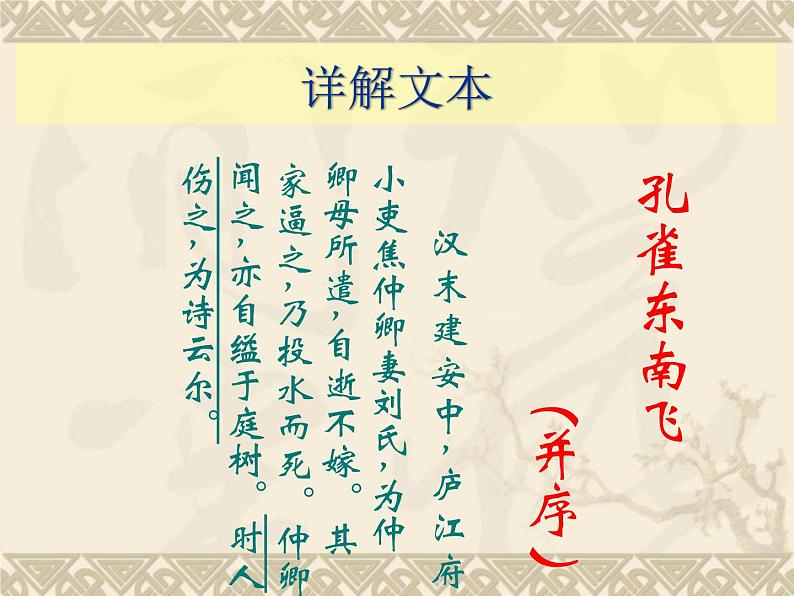 详解文本
孔雀东南飞
(并序)
汉末建安中,庐江府
小吏焦仲卿妻刘氏,为仲
卿母所遣,自逝不嫁。其
家逼之,乃投水而死。仲卿
闻之,亦自缢于庭树。时人
伤之,为诗云尔。